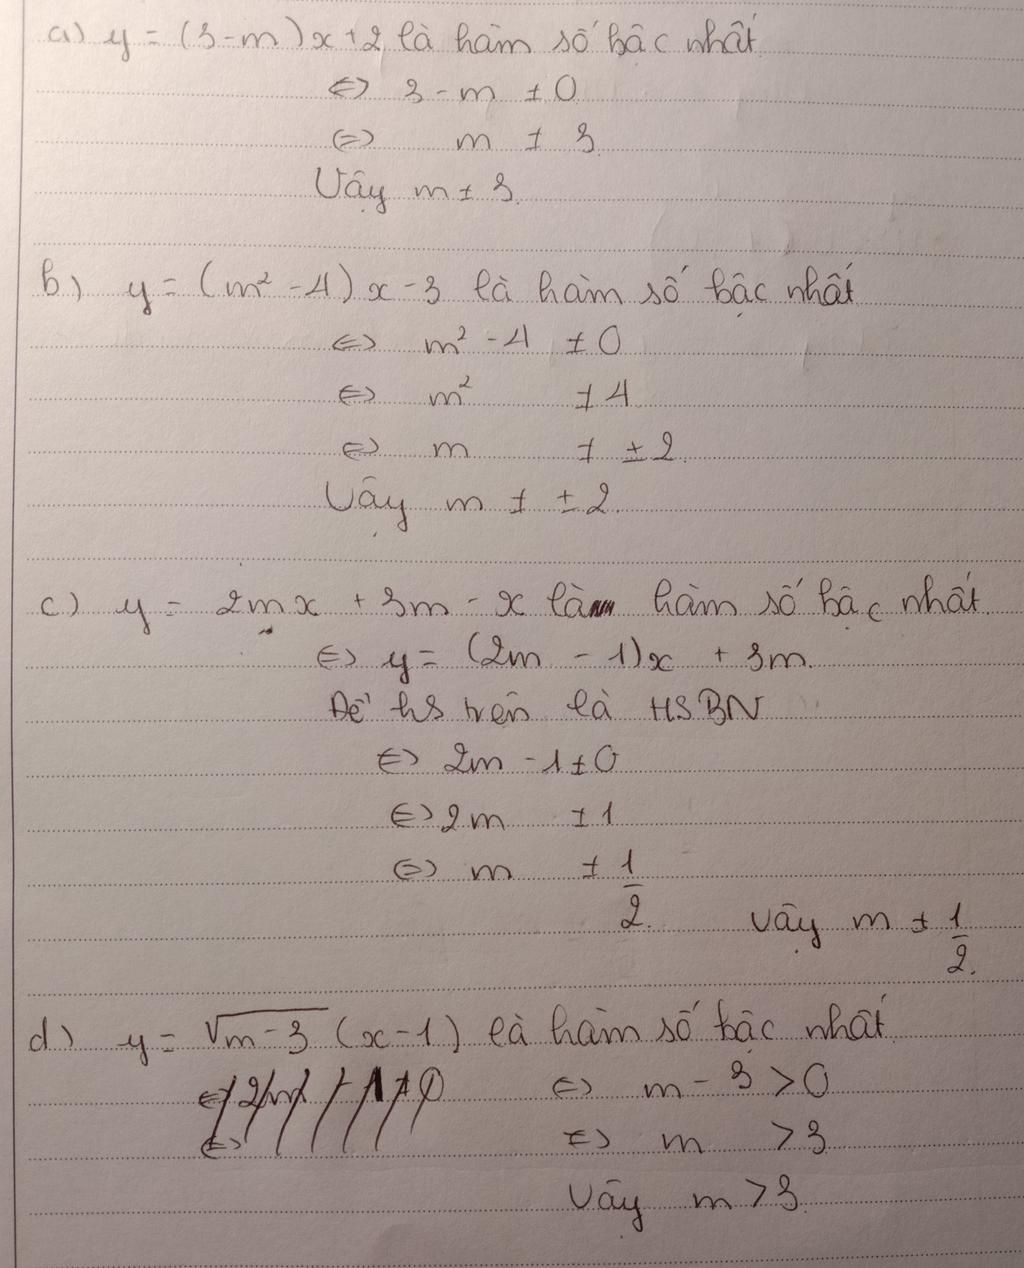 a) y = (3-m)x+2 là hàm số bậc nhất
⇔ 3-m ≠ 0
⇔ m ≠ 3
Vậy m ≠ 3.
b) y = (m² - 4)x - 3 là hàm số bậc nhất
⇔ m² - 4 ≠ 0
⇔ m² ≠ 4
⇔ m ≠ ±2.
Vậy m ≠ ±2.
c) y = 2mx + 3m - x là hàm số bậc nhất.
⇔ y = (2m - 1)x + 3m.
Để hs trên là HSBN
⇔ 2m - 1 ≠ 0
⇔ 2m ≠ 1
⇔ m ≠ 1/2. Vậy m ≠ 1/2.
d) y = √(m-3) (x-1) là hàm số bậc nhất
⇔ m - 3 > 0
⇔ m > 3
Vậy m > 3.